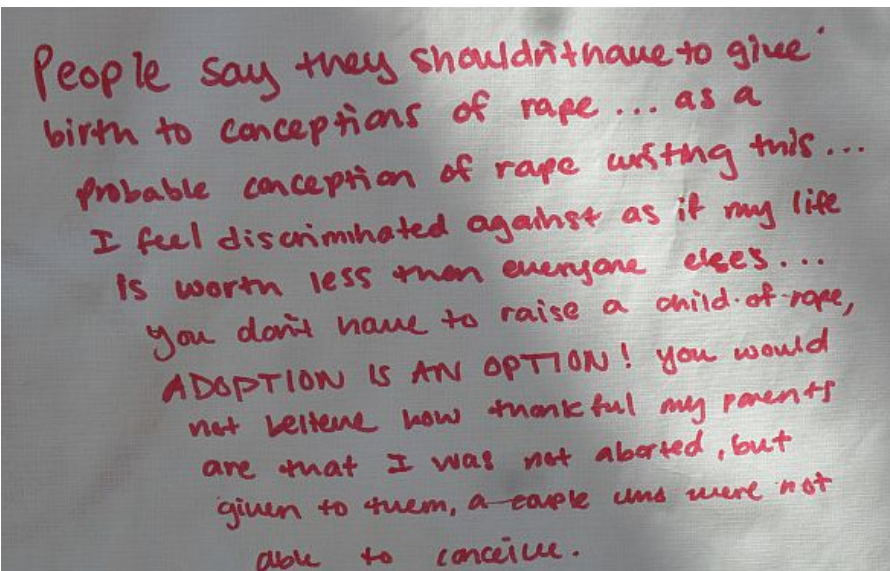 People say they shouldn't have to give
birth to conceptions of rape... as a
probable conception of rape writing this...
I feel discriminated against as if my life
is worth less then everyone elses...
you don't have to raise a child-of-rope,
ADOPTION IS AN OPTION! you would
not believe how thankful my parents
are that I was not aborted, but
given to them, a couple who were not
able to conceive.